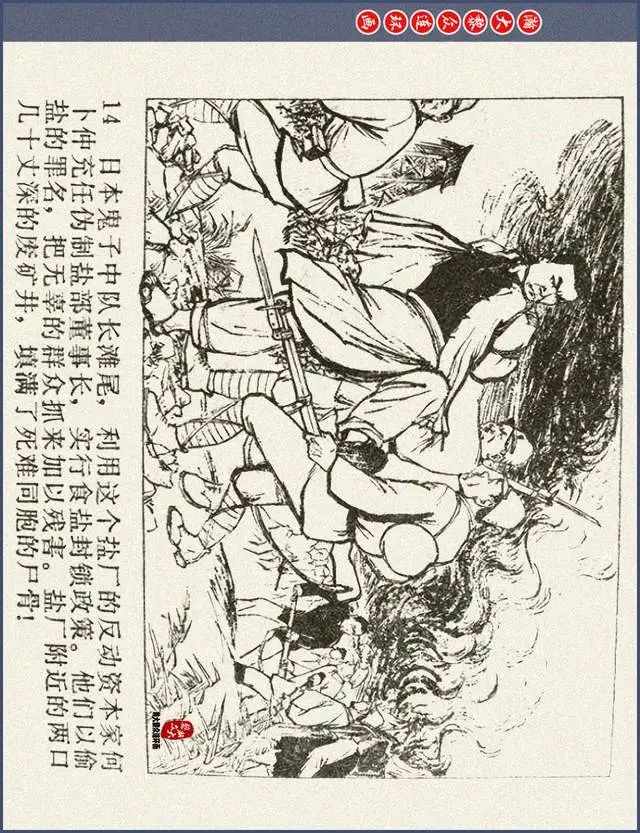 瀚大黎众连环画
14 日本鬼子中队长滩尾，利用这个盐厂的反动资本家何
卜仲充任伪制盐部董事长，实行食盐封锁政策。他们以偷
盐的罪名，把无辜的群众抓来加以残害。盐厂附近的两口
几十丈深的废矿井，填满了死难同胞的尸骨！